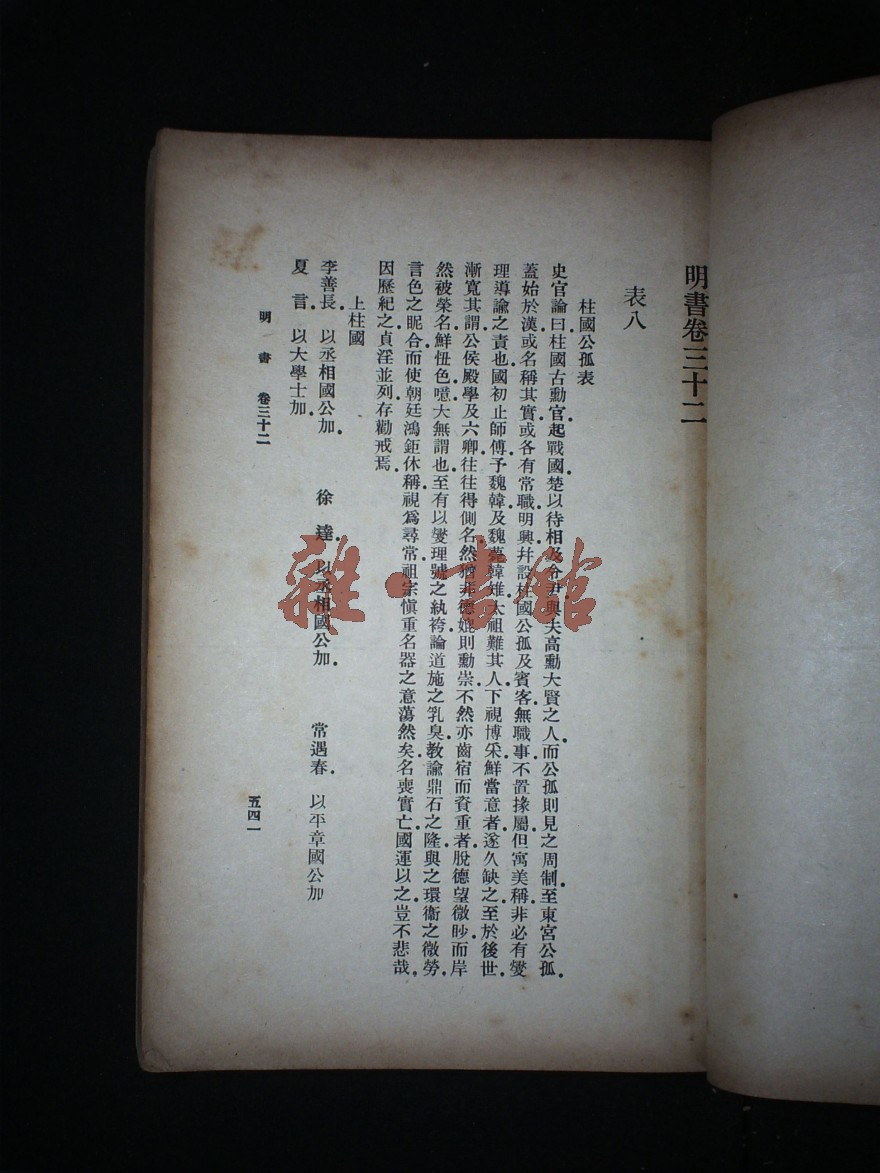 明書卷三十二
表八
柱國公孤表
史官論曰柱國古勳官起戰國楚以待相及令尹與夫高勳大賢之人而公孤則見之周制至東宮公孤
蓋始於漢或名稱其實或各有常職明興幷設柱國公孤及賓客無職事不置掾屬但寓美稱非必有燮
理導諭之責也國初止師傅予魏韓及魏薨韓雉太祖難其人下視博采鮮當意者遂久缺之至於後世
漸寬其謂公侯殿學及六卿往往得側名然猶非德媲則勳崇不然亦齒宿而資重者脫德望微眇而岸
然被榮名鮮忸色噫大無謂也至有以燮理號之紈袴論道施之乳臭教諭鼎石之隆與之環衞之微勞
言色之昵合而使朝廷鴻鉅休稱視爲尋常祖宗愼重名器之意蕩然矣名喪實亡國運以之豈不悲哉
因歷紀之貞淫並列存勸戒焉
上柱國
李善長 以丞相國公加 徐達 以丞相國公加 常遇春 以平章國公加
夏言 以大學士加
明書 卷三十二 五四一
雜·書館